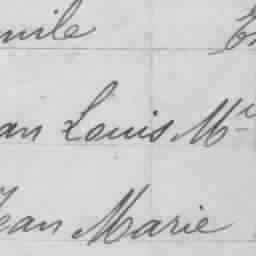 mile E
an Louis M
Jean Marie